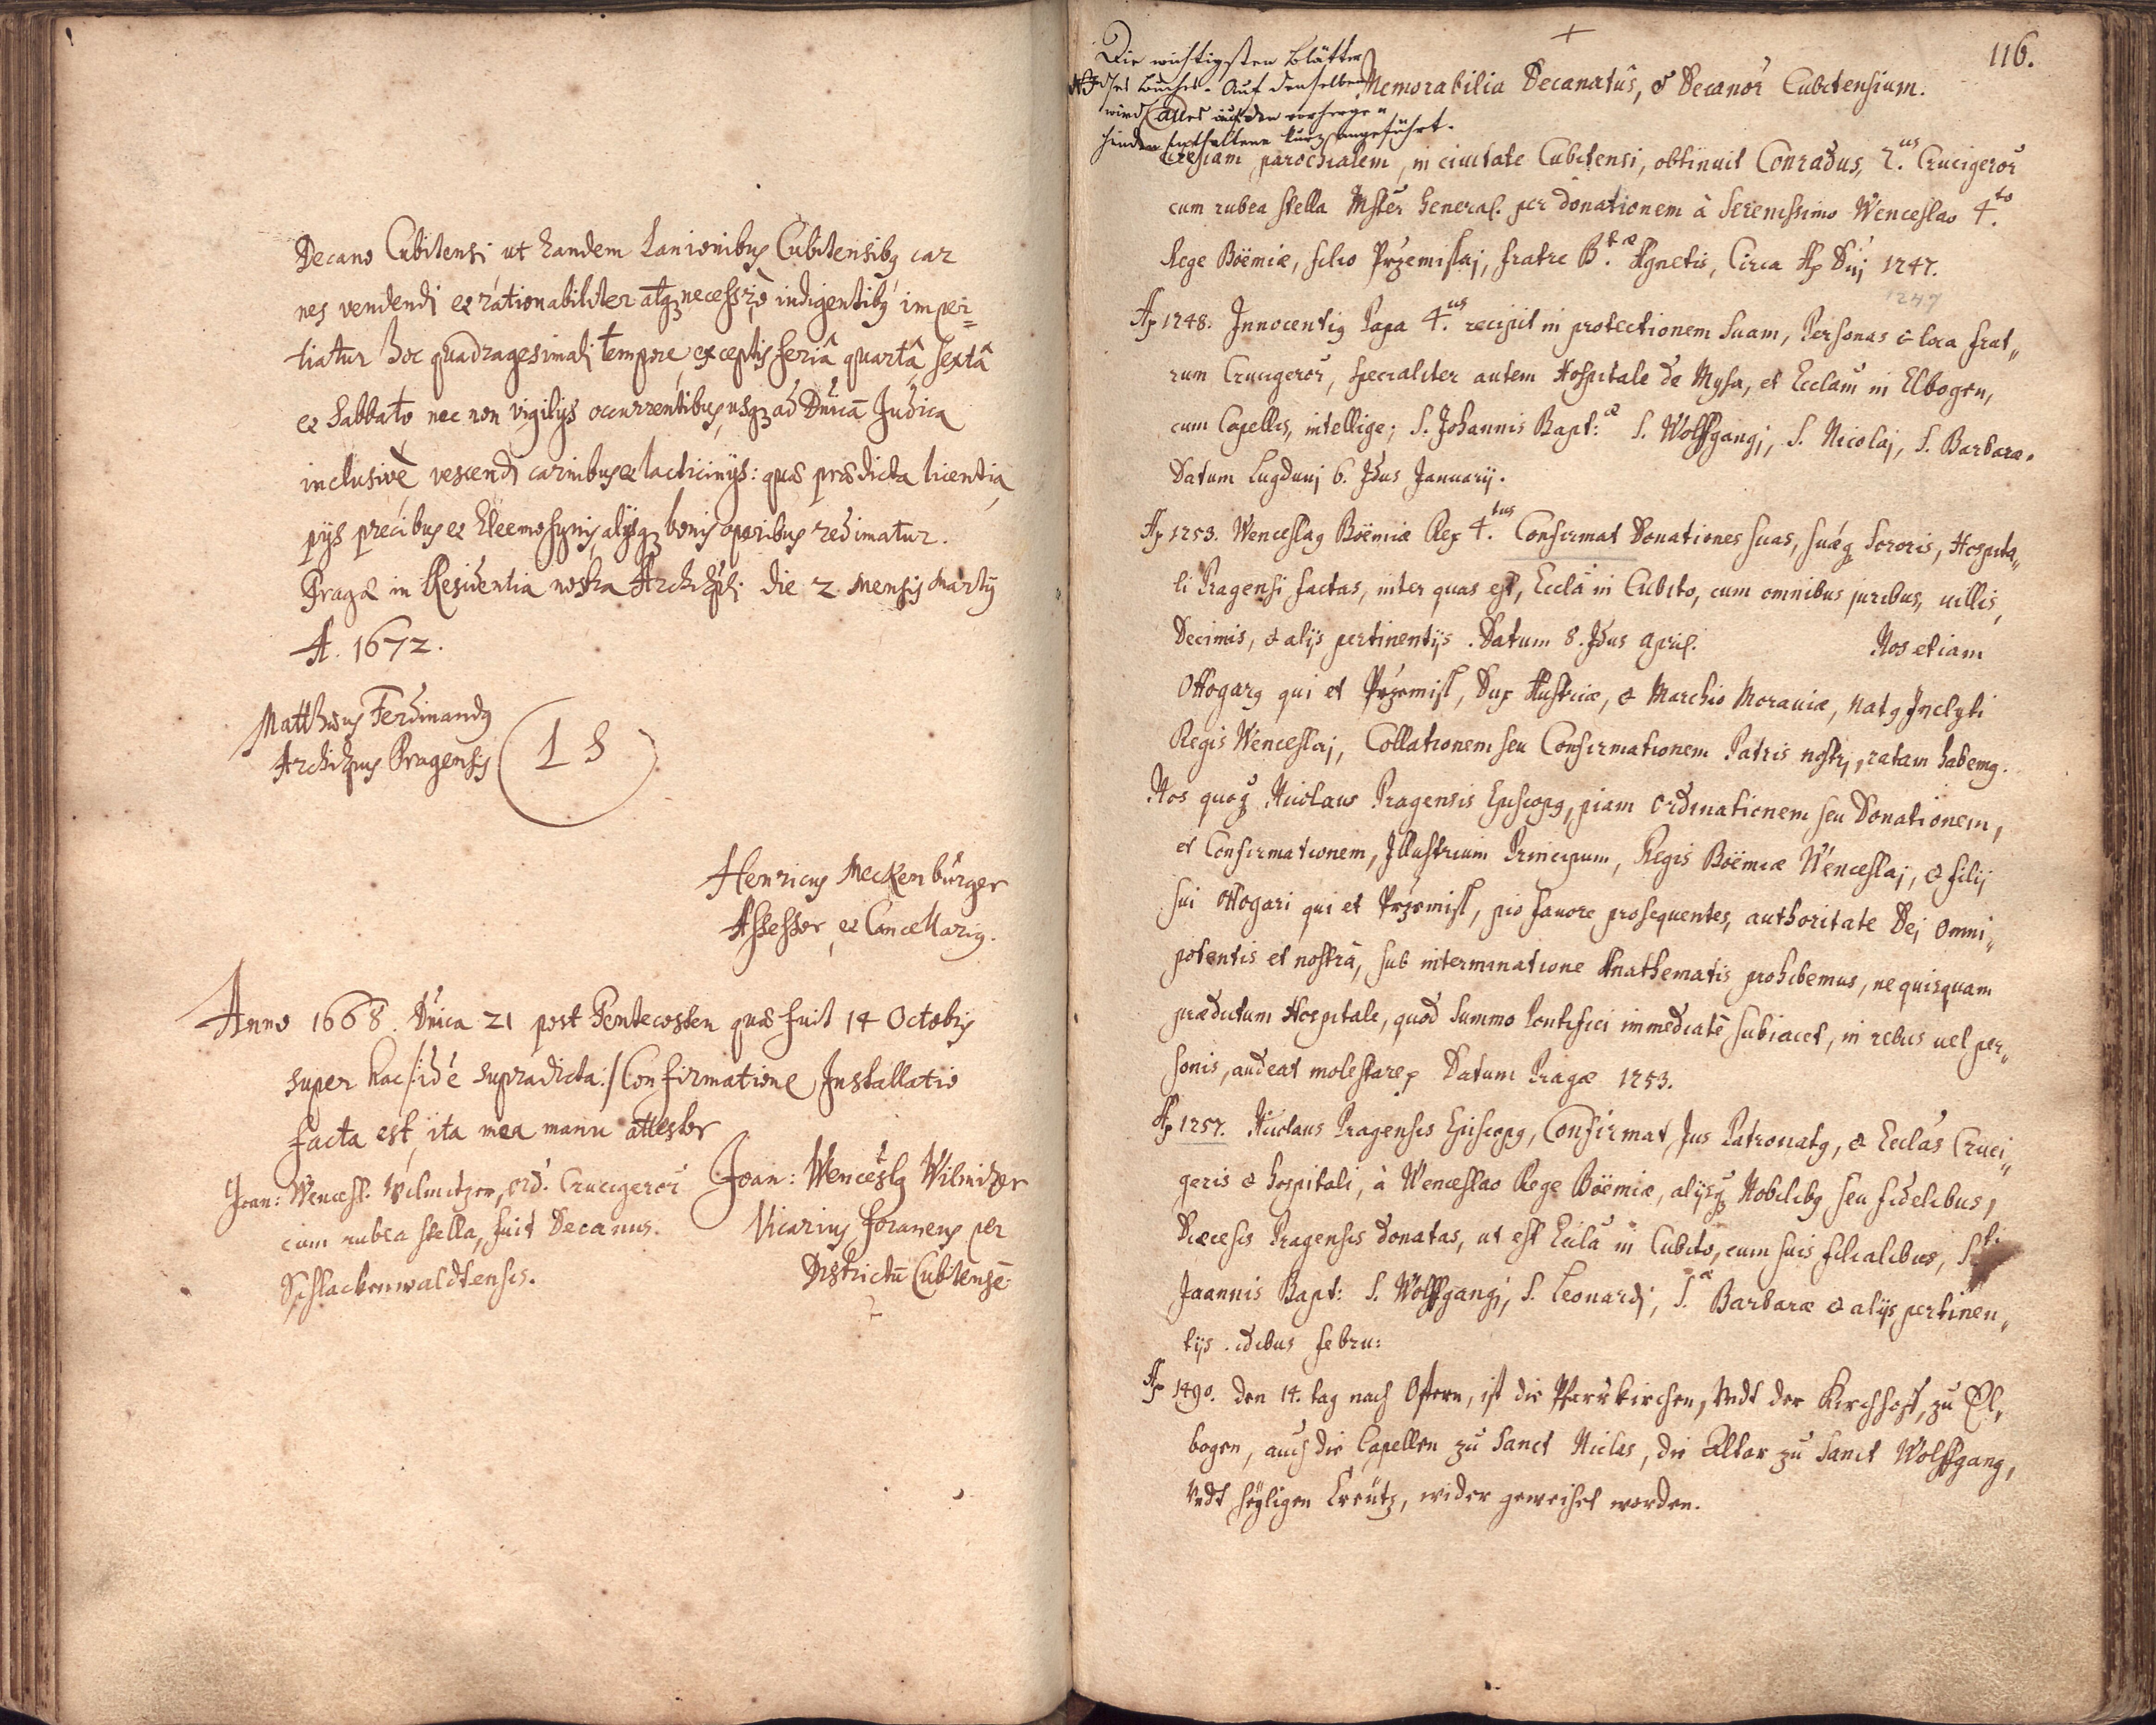 Decano Cubitensi ut eandem Lanionibus Cubitensibq car
nes vendendi et rationabiliter atqz necessriò indigentibq imper=
tiatur hoc quadragesimali tempore, exceptis feriâ quartâ, sextâ
et Sabbato nec non vigilijs occurrentibus, usqz ad Dnicā Judica
inclusivè vescendi carnibus et lacticinijs: quæ prædicta licentia
pijs precibus et Eleemosynis, alijsqz bonis operibus redimatur.
Pragæ in Residentia nostra Archiepli die 2 mensis Martij
A. 1672.
Matthæus Ferdinandq
Archiepus Pragensis
L S
Henricus Meckenburger
Assessor et Cancellariq.
Anno 1668. Dnica 21 post Pentecosten quæ fuit 14 Octobris
super hac /: idē supradicta :/ Confirmatione Installatio
facta est, ita mea manu attestor
Joan: Wenceslq Wilmitzer
Vicarius foraneus per
Districtū Cubitensē
Joan: Wencesl. Wilmitzer, ord. Crucigeror
cum rubea stella, fuit Decanus
Schlackenwaldtensis.
116.
Die wichtigsten Blätter
NB dses Buches. Auf denselben
wird alles auf den vorherge=
henden Enthaltene kurz angeführt.
Memorabilia Decanatûs, & Decanor Cubitensium.
Ecclesiam parochialem, in ciuitate Cubitensi, obtinuit Conradus, 2.us Crucigeror
cum rubea stella Mster General. per donationem à Serenissimo Wenceslao 4.to
Rege Böemiæ, filio Przemislaj, fratre B.tæ Agnetis, Circa Ao Dnj 1247.
1247
Ao 1248. Innocentiq Papa 4.us recipit in protectionem suam, Personas & loca frat„
rum Crucigeror, specialiter autem Hospitale de Mysa, et Ecclam in Elbogen,
cum Capellis, intellige; S. Johannis Bapt:æ S. Wolffgangj, S. Nicolaj, S. Barbaræ.
Datum Lugdunj 6. Idus Januarij.
Ao 1253. Wenceslaq Böemiæ Rex 4.tus Confirmat Donationes suas, suæqz Sororis, Hospita„
li Pragensi factas, inter quas est, Eccla in Cubito, cum omnibus juribus, uillis,
Decimis, & alijs pertinentijs. Datum 8. Idus April. Nos etiam
Ottogarq qui et Przemisl, Dux Austriæ, & Marchio Morauiæ, natq Inclyti
Regis Wenceslaj, Collationem seu Confirmationem Patris nostrj, ratam habemq.
Nos quoqz Nicolaus Pragensis Episcopq, piam ordinationem seu Donationem,
et Confirmationem, Illustrium Principum, Regis Böemiæ Wenceslaj, & filij
sui Ottogari qui et Przemisl, pio fauore prosequentes, authoritate Dej Omni„
potentis et nostrâ, sub interminatione Anathematis prohibemus, ne quisquam
prædictum Hospitale, quod Summo Pontifici immediatè subiacet, in rebus uel per„
sonis, audeat molestare. Datum Pragæ 1253.
Ao 1257. Nicolaus Pragensis Episcopq, Confirmat Jus Patronatq, & Ecclas Cruci„
geris & hospitali, à Wenceslao Rege Böemiæ, alijsqz Nobilibq seu fidelibus,
Diœcesis Pragensis donatas, ut est Eccla in Cubito, cum suis filialibus, S.ti
Joannis Bapt: S. Wolffgangj, S. Leonardj, S.æ Barbaræ & alijs pertinen„
tijs. idibus febru:
Ao 1490. den 14. tag nach Ostern, ist die Pfarrkirchen, undt der Kirchhoff, zu El„
bogen, auch die Capellen zu Sanct Niclas, die Altar zu Sanct Wolffgang,
undt heyligen Creütz, wider geweihet worden.